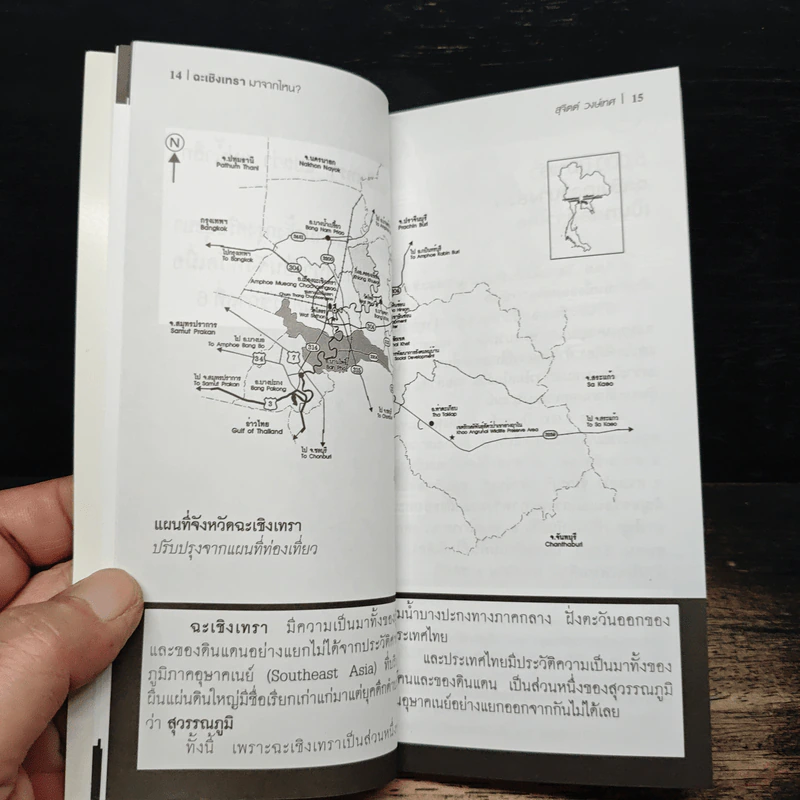 14 | ฉะเชิงเทรา มาจากไหน?
สุจิตต์ วงษ์เทศ | 15
N
จ.ปทุมธานี
Pathum Thani
จ.นครนายก
Nakhon Nayok
กรุงเทพฯ
Bangkok
อ.บางน้ำเปรี้ยว
Bang Nam Priao
จ.ปราจีนบุรี
Prachin Buri
ไปกรุงเทพฯ
To Bangkok
304
Amphoe Mueang Chachoengsao
จ.สมุทรปราการ
Samut Prakan
ไป อ.บางบ่อ
To Amphoe Bang Bo
34
7
314
315
ไป จ.สมุทรปราการ
To Samut Prakan
3
อ.บางปะกง
Bang Pakong
อ่าวไทย
Gulf of Thailand
ไป จ.ชลบุรี
To Chonburi
อ.ท่าตะเกียบ
Tha Takiap
เขตรักษาพันธุ์สัตว์ป่าเขาอ่างฤาไน
Khao Angruhai Wildlife Preserve Area
3259
จ.สระแก้ว
Sa Kaeo
ไป จ.สระแก้ว
To Sa Kaeo
จ.จันทบุรี
Chanthaburi
แผนที่จังหวัดฉะเชิงเทรา
ปรับปรุงจากแผนที่ท่องเที่ยว
ฉะเชิงเทรา มีความเป็นมาทั้งของ
และของดินแดนอย่างแยกไม่ได้จากประวัติศา
ภูมิภาคอุษาคเนย์ (Southeast Asia) ที่บริ
ผืนแผ่นดินใหญ่มีชื่อเรียกเก่าแก่มาแต่ยุคดึกดำ
ว่า สุวรรณภูมิ
ทั้งนี้ เพราะฉะเชิงเทราเป็นส่วนหนึ่ง
มน้ำบางปะกงทางภาคกลาง ฝั่งตะวันออกของ
ระเทศไทย
และประเทศไทยมีประวัติความเป็นมาทั้งของ
คนและของดินแดน เป็นส่วนหนึ่งของสุวรรณภูมิ
นอุษาคเนย์อย่างแยกออกจากกันไม่ได้เลย